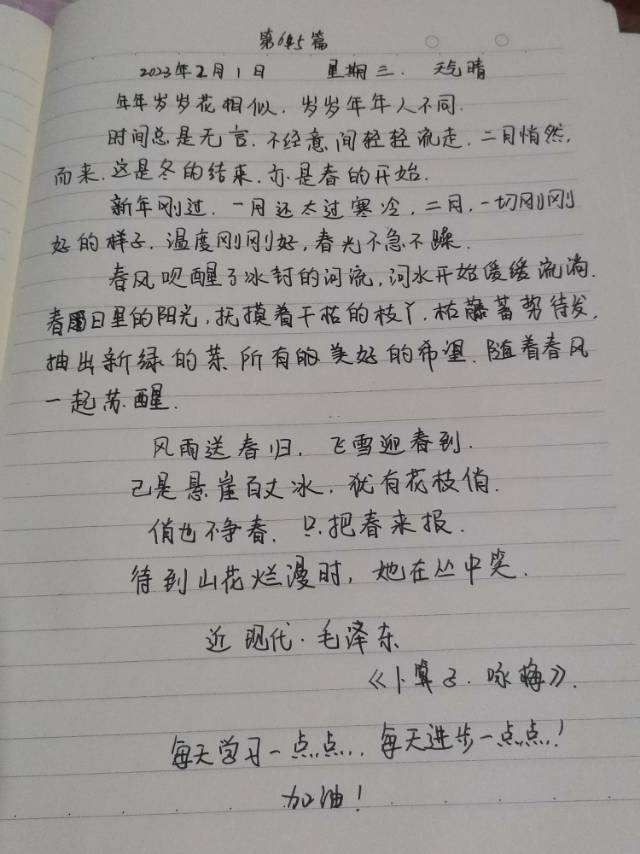 第645篇
2023年2月1日 星期三. 天气晴
年年岁岁花相似，岁岁年年人不同.
时间总是无言，不经意间轻轻流走，二月悄然，
而来，这是冬的结束，亦是春的开始.
新年刚过，一月还太过寒冷，二月，一切刚刚
好的样子，温度刚刚好，春光不急不躁.
春风唤醒了冰封的河流，河水开始缓缓流淌.
春日里的阳光，抚摸着干枯的枝丫，枯藤蓄势待发，
抽出新绿的芽 所有的美好的希望，随着春风
一起苏醒.
风雨送春归，飞雪迎春到.
已是悬崖百丈冰，犹有花枝俏.
俏也不争春，只把春来报.
待到山花烂漫时，她在丛中笑.
近现代·毛泽东
《卜算子·咏梅》.
每天学习一点点，每天进步一点点！
加油！